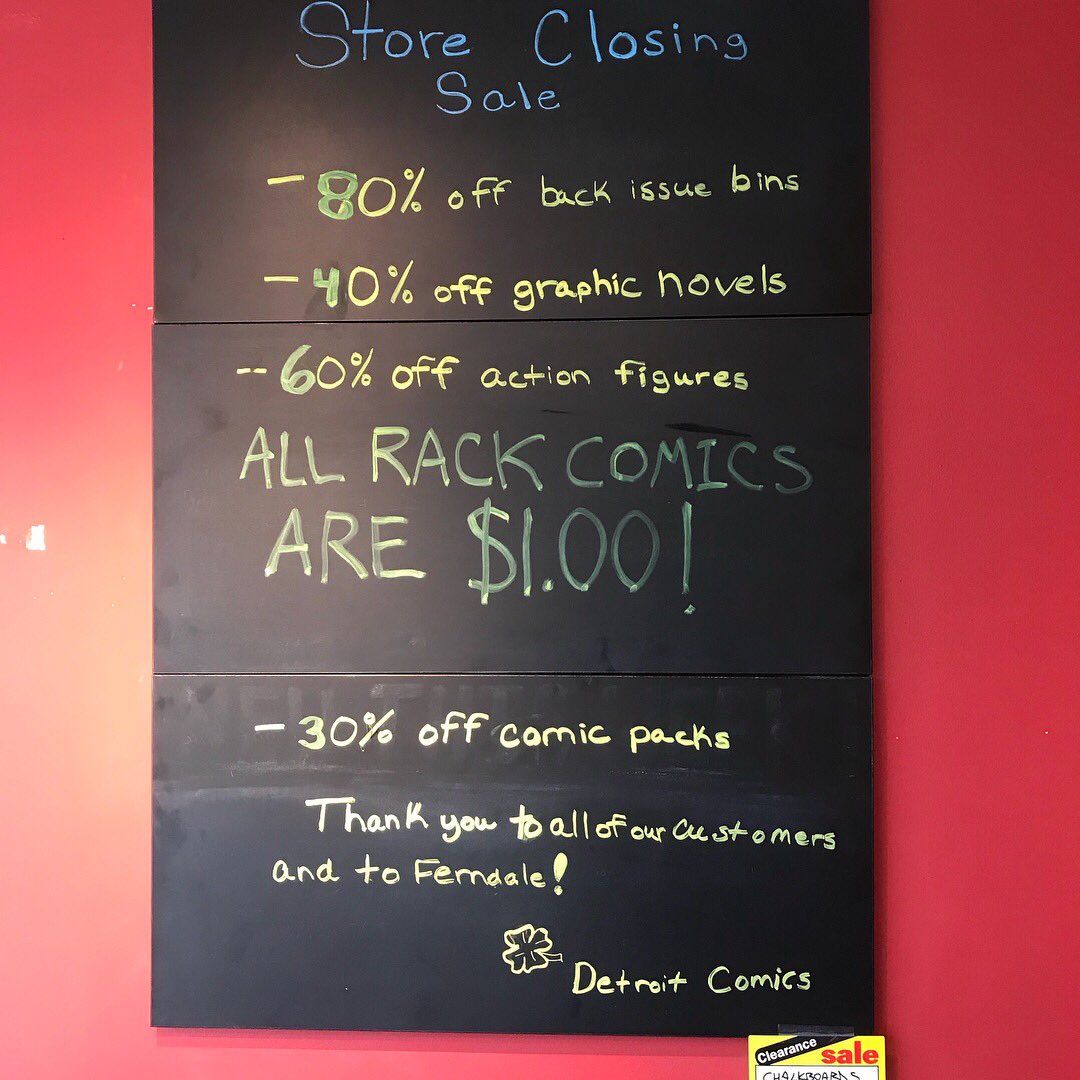 Store Closing
Sale
- 80% off back issue bins
- 40% off graphic novels
-- 60% off action figures
ALL RACK COMICS
ARE $1.00!
- 30% off comic packs
Thank you to all of our customers
and to Ferndale!
Detroit Comics
Clearance sale
CHALKBOARDS